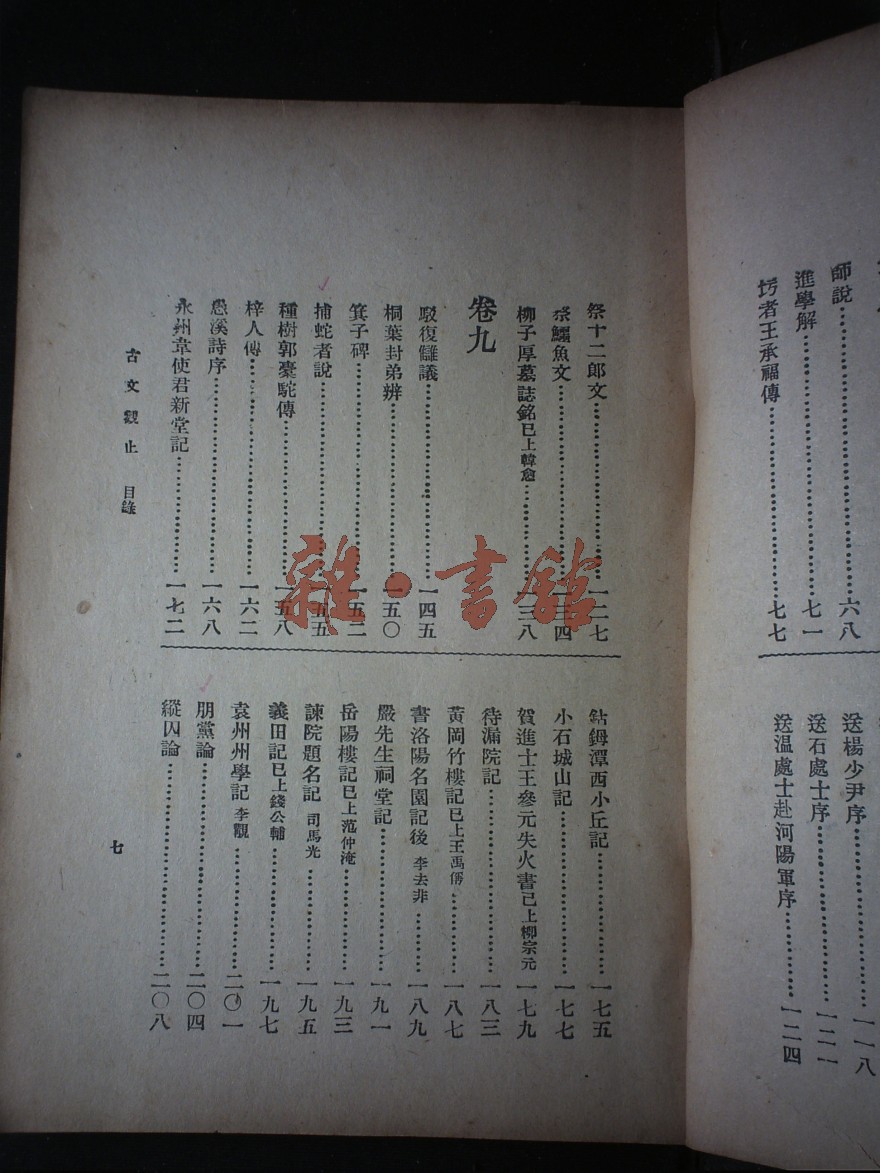 師說⋯⋯六八
進學解⋯⋯七一
圬者王承福傳⋯⋯七七
送楊少尹序⋯⋯一一八
送石處士序⋯⋯一二一
送溫處士赴河陽軍序⋯⋯一二四
祭十二郎文⋯⋯一二七
祭鱷魚文⋯⋯一三四
柳子厚墓誌銘已上韓愈⋯⋯一三八
卷九
駁復讎議⋯⋯一四五
桐葉封弟辨⋯⋯一五〇
箕子碑⋯⋯一五二
捕蛇者說⋯⋯一五五
種樹郭橐駝傳⋯⋯一五八
梓人傳⋯⋯一六二
愚溪詩序⋯⋯一六八
永州韋使君新堂記⋯⋯一七二
鈷鉧潭西小丘記⋯⋯一七五
小石城山記⋯⋯一七七
賀進士王參元失火書已上柳宗元 一七九
待漏院記⋯⋯一八三
黃岡竹樓記已上王禹偁⋯⋯一八七
書洛陽名園記後 李去非⋯⋯一八九
嚴先生祠堂記⋯⋯一九一
岳陽樓記已上范仲淹⋯⋯一九三
諫院題名記 司馬光⋯⋯一九五
義田記已上錢公輔⋯⋯一九七
袁州州學記 李覯⋯⋯二〇一
朋黨論⋯⋯二〇四
縱囚論⋯⋯二〇八
古文觀止 目錄
七
雜·書館